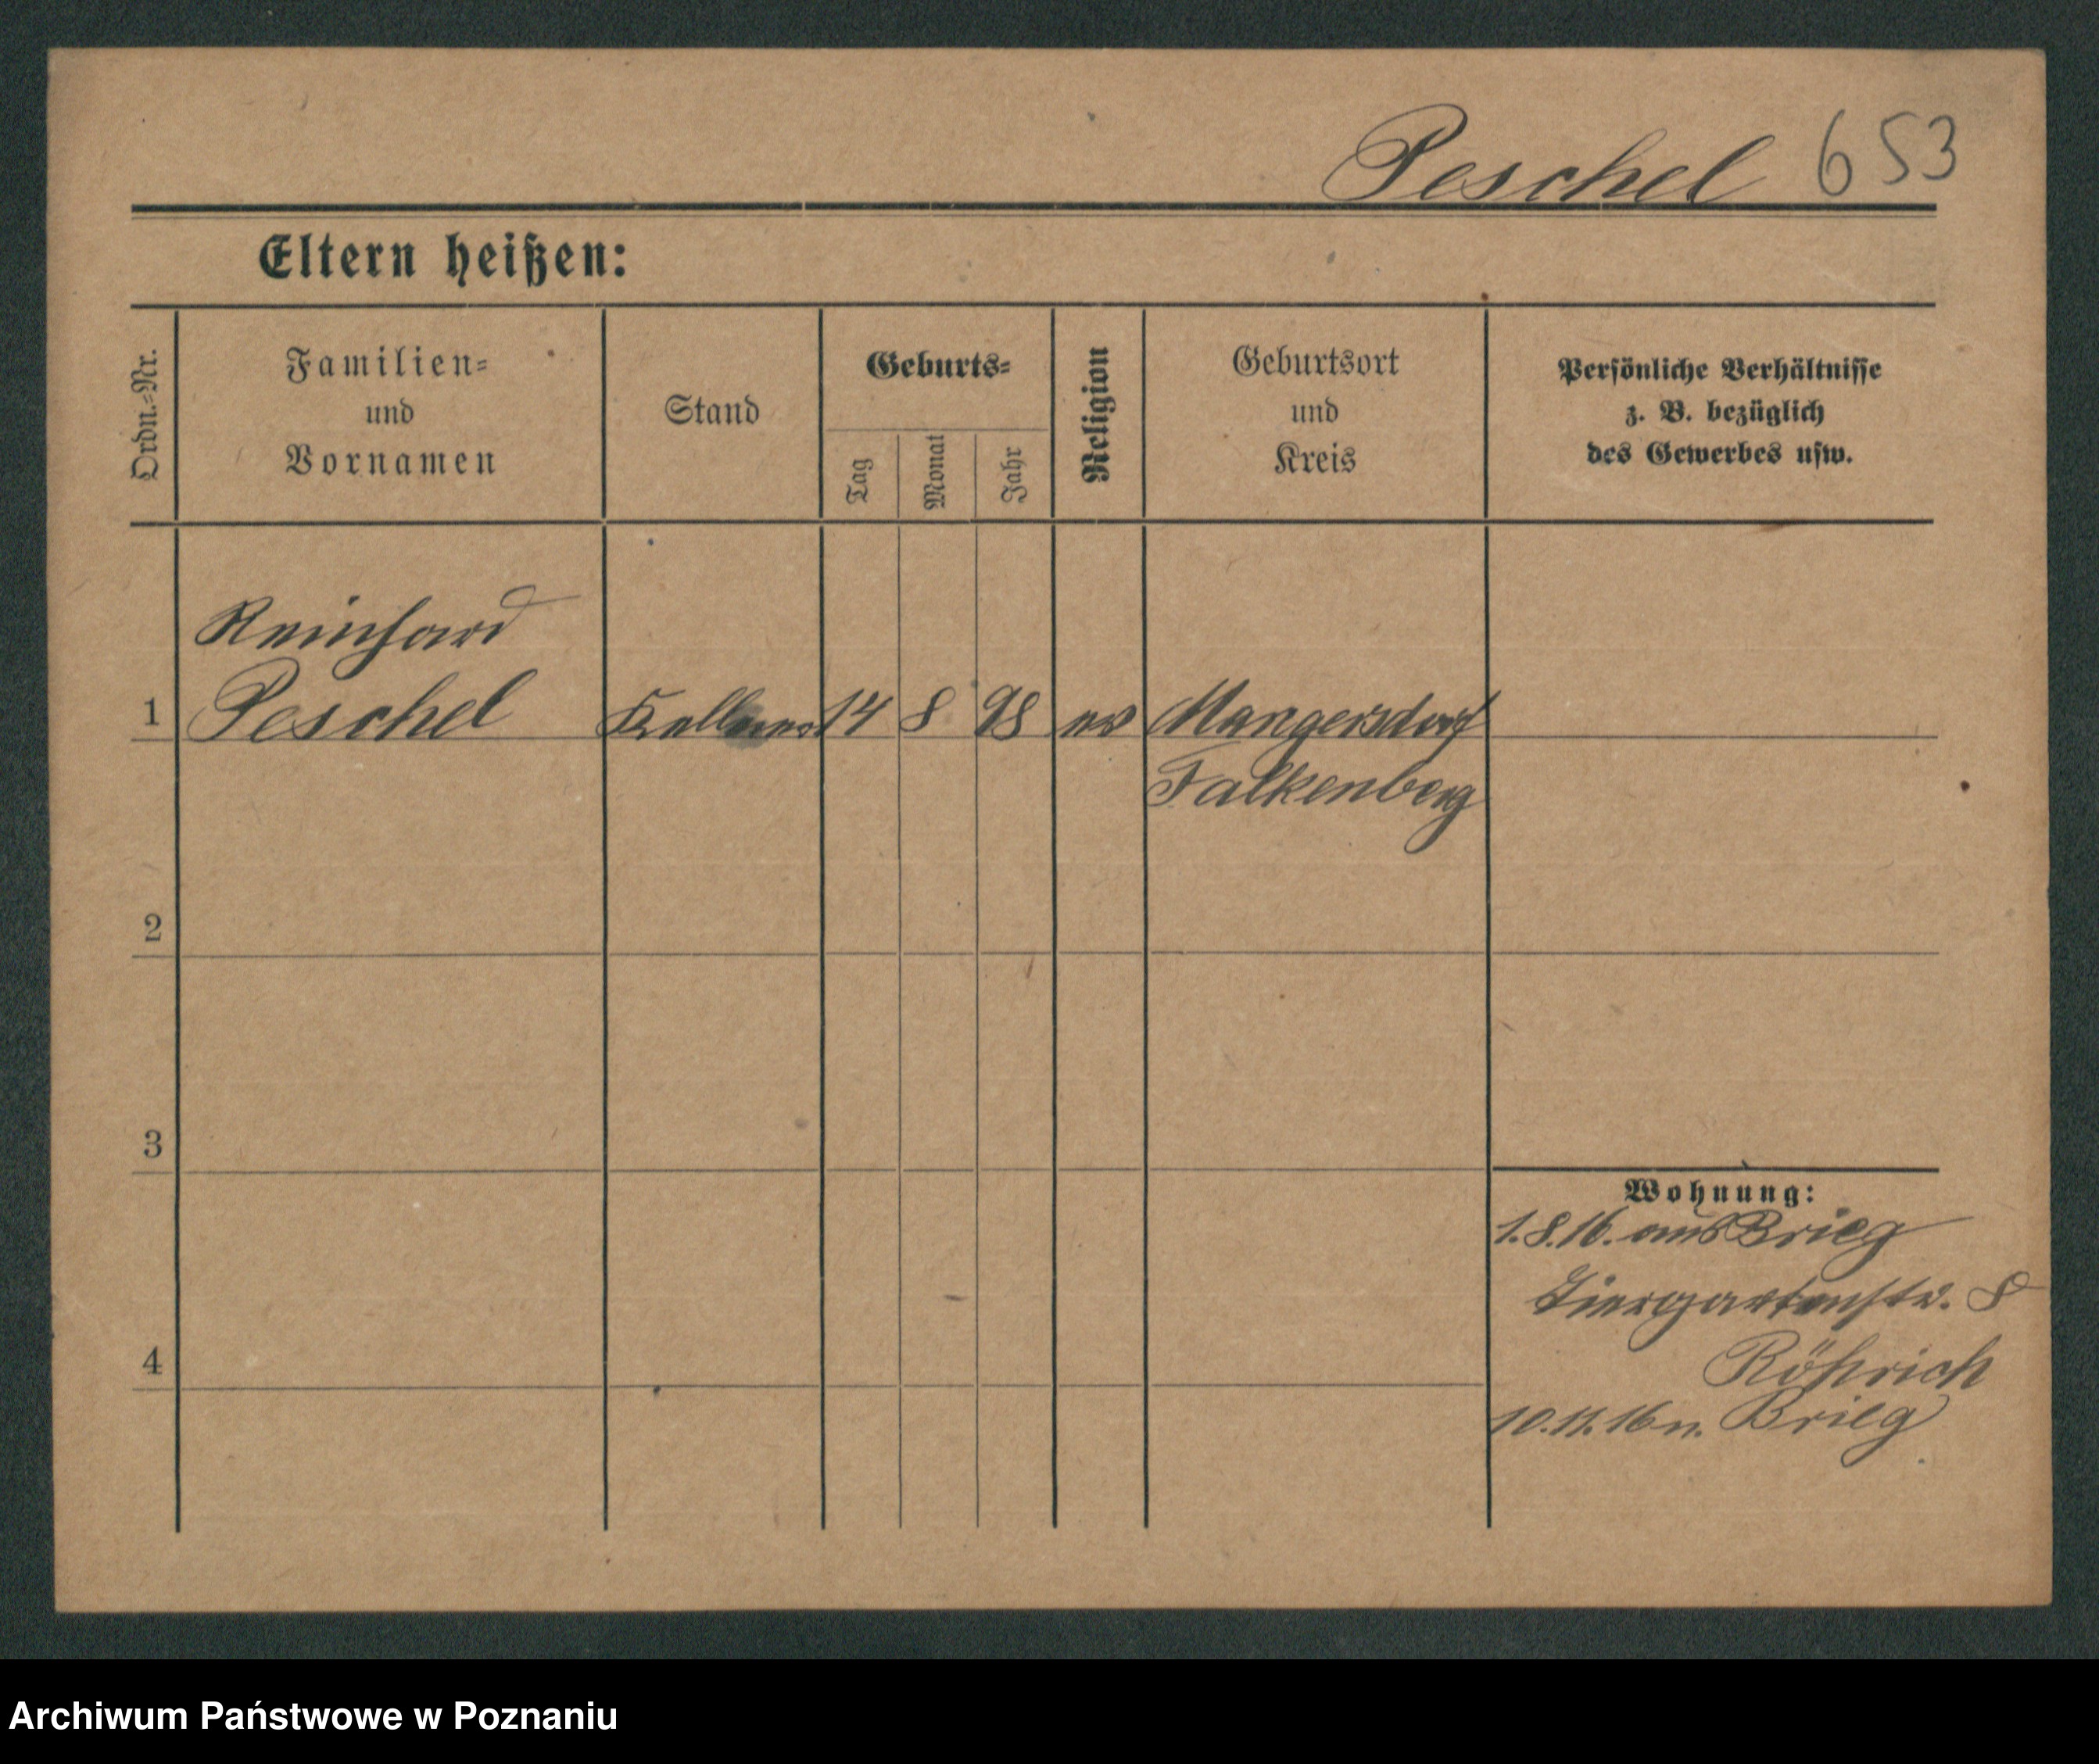 Peschel 653
Eltern heißen:
Ordn.-Nr.
Familien-
und
Vornamen
Stand
Geburts-
Tag
Monat
Jahr
Religion
Geburtsort
und
Kreis
Persönliche Verhältnisse
z. B. bezüglich
des Gewerbes usw.
Reinhard
1 Peschel Kellner 14 8 98 ev Mangersdorf
Falkenberg
2
3
Wohnung:
1.8.16. aus Brieg
Tiergartenstr. 8
4
Röhrich
10.11.16 n. Brieg
Archiwum Państwowe w Poznaniu